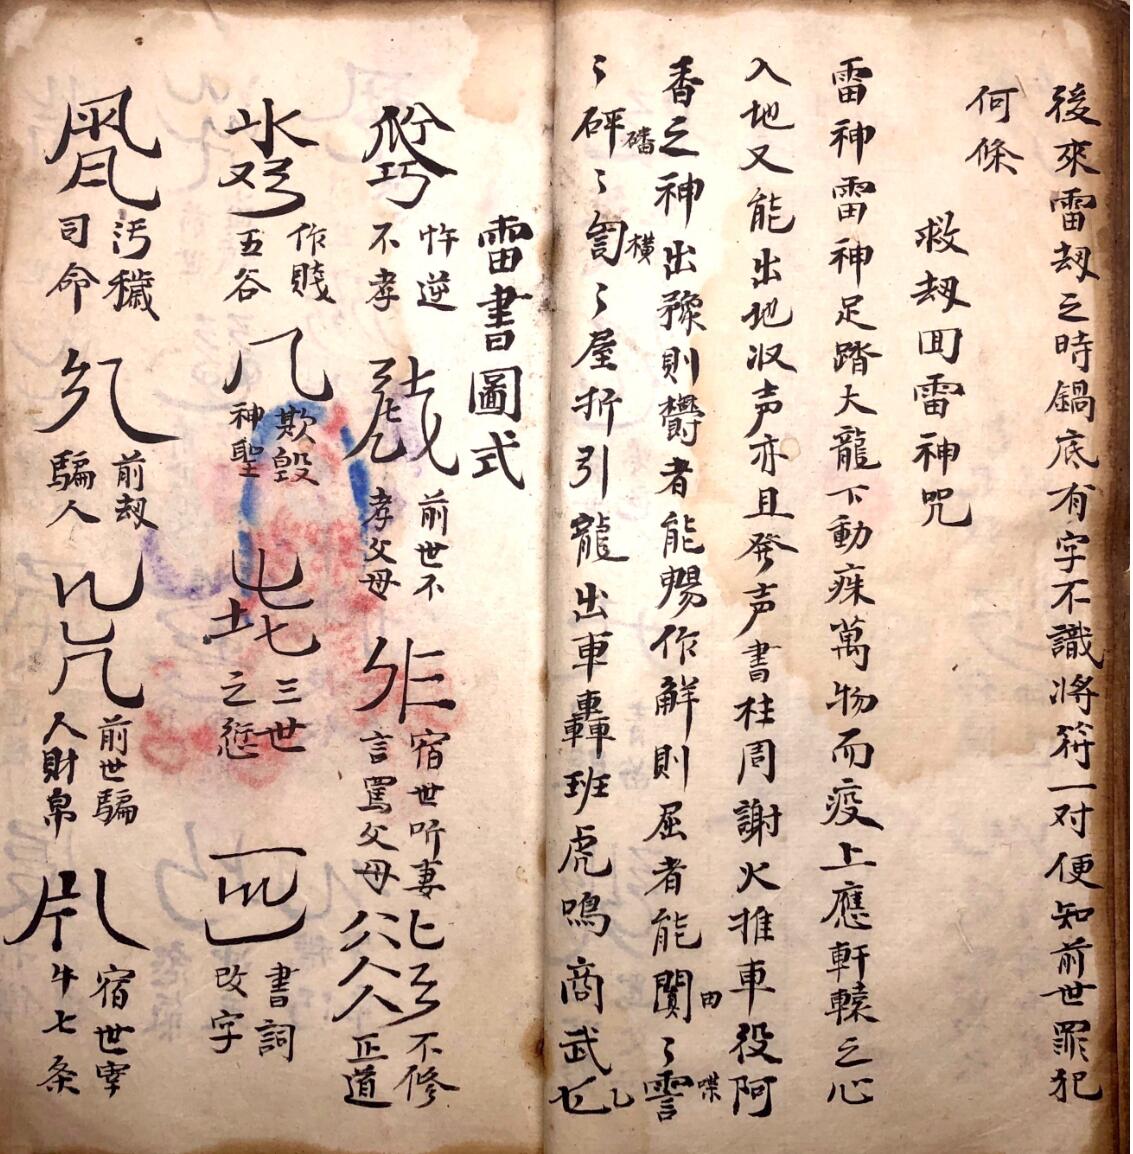 後來雷刼之時鍋底有字不識將符一对便知前世罪犯
何條
救刼回雷神咒
雷神雷神足踏大龍下動庥萬物而疫上應軒轅之心
入地又能出地収声亦且發声書柱周謝火推車役阿
香之神出豫則欝者能暢作解則屈者能闃田ミ霅喋
ミ砰磻ミ訇橫ミ屋折引龍出車轟班虎鳴商武乞乙
雷書圖式
忤逆
不孝
前世不
孝父母
宿世听妻
言罵父母
不修
正道
作賤
五谷
欺毁
神聖
三世
之愆
書詞
改字
汚穢
司命
前刼
騙人
前世騙
人財帛
宿世宰
牛七条